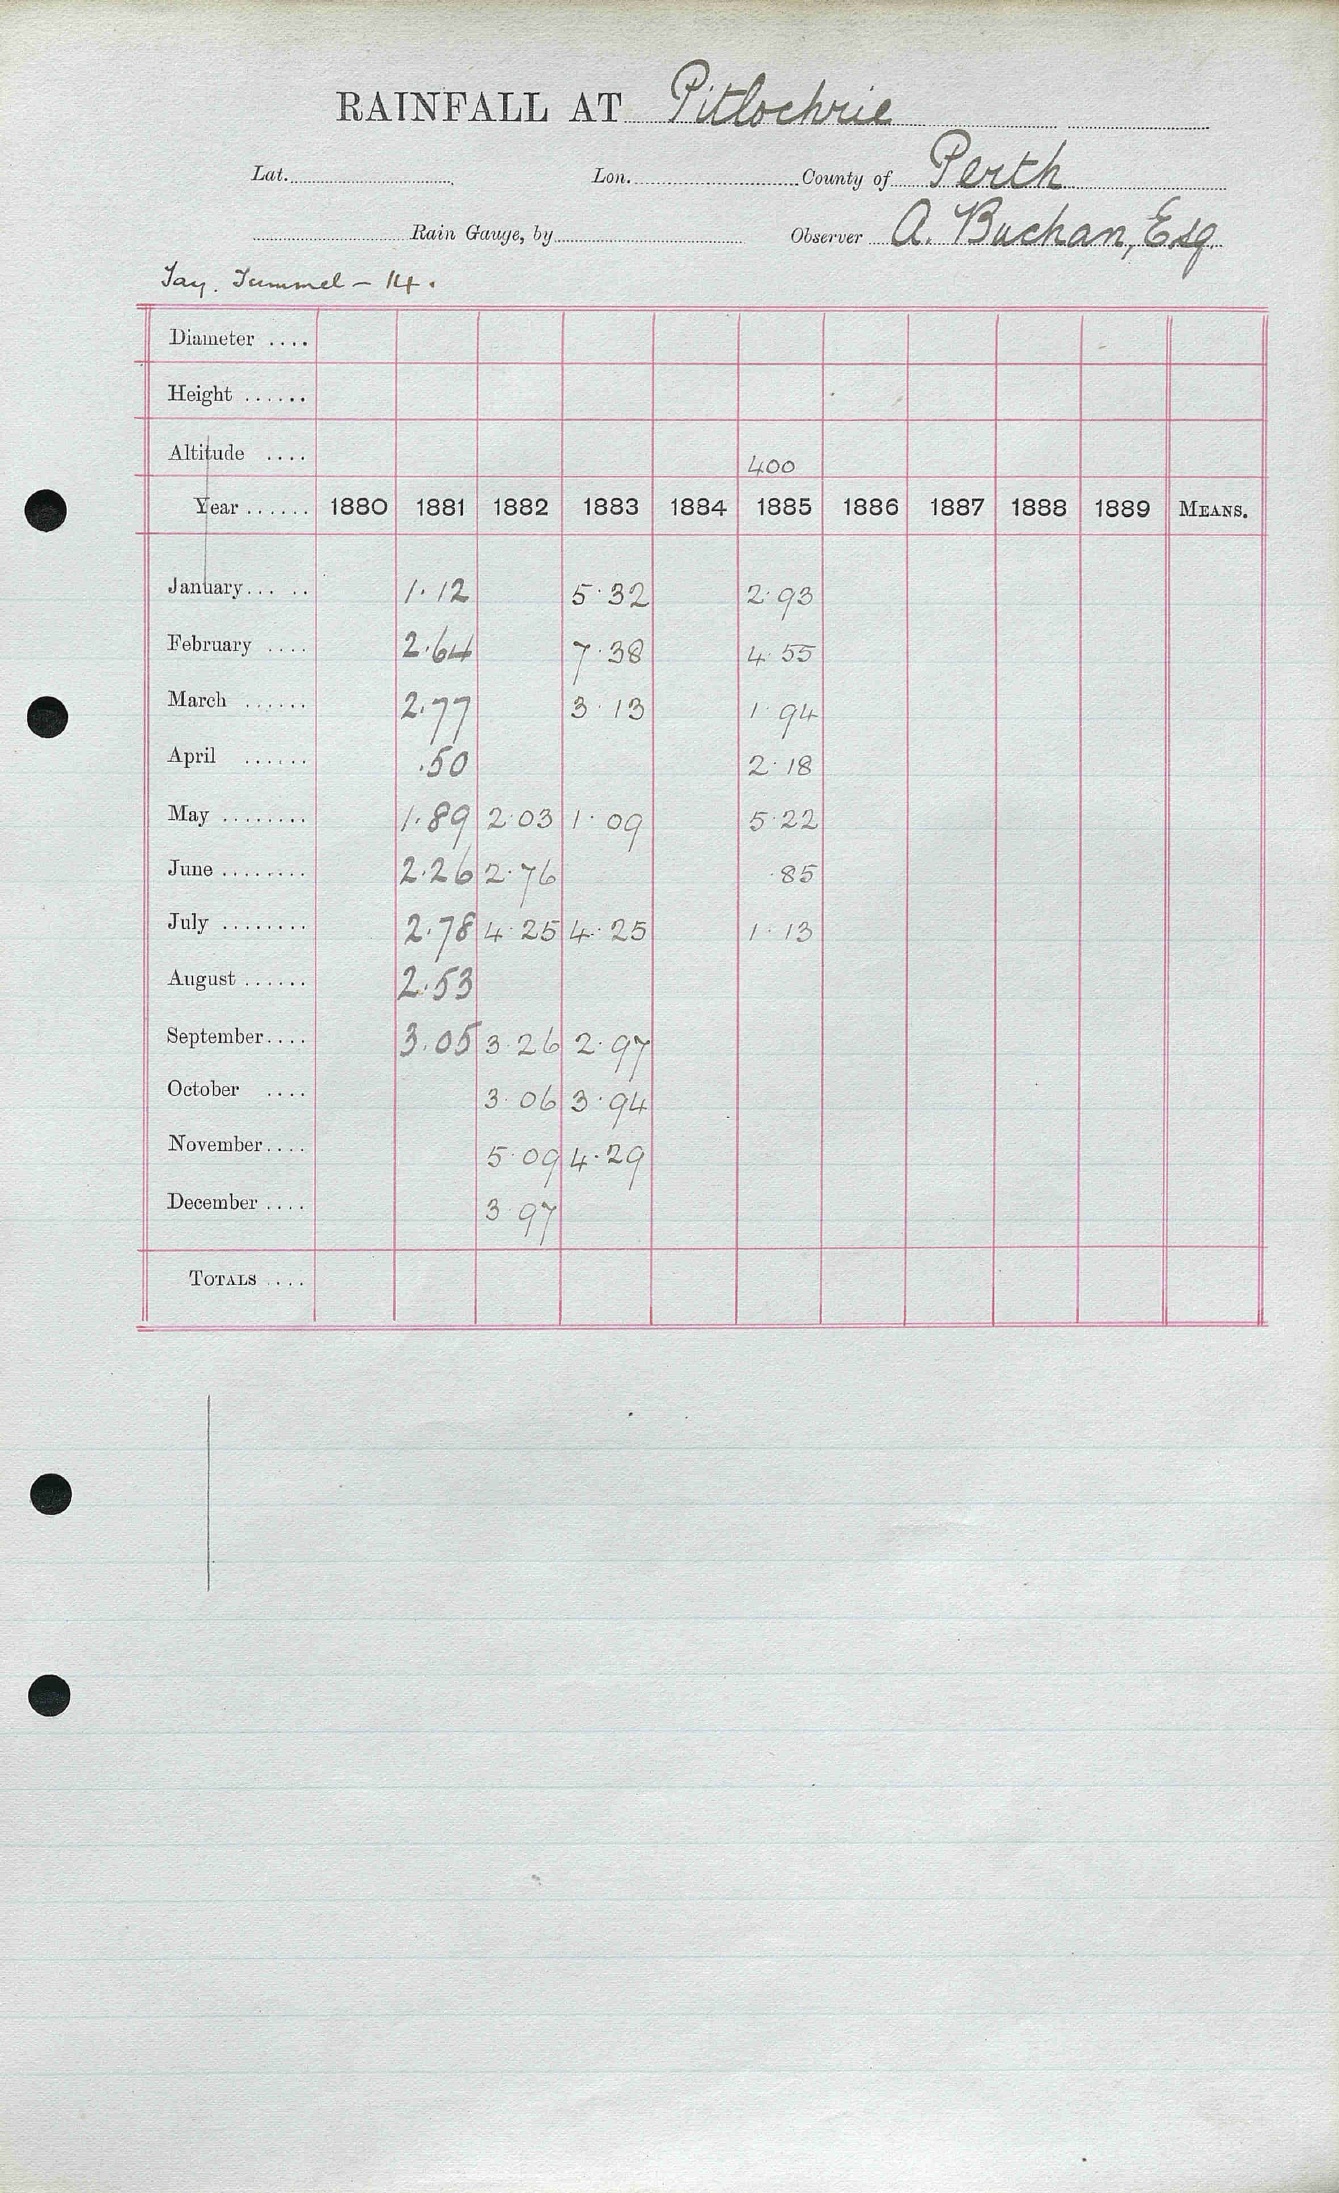 RAINFALL AT Pitlochrie
Lat. Lon. County of Perth
Rain Gauge, by Observer A. Buchan, Esq.
Tay. Tummel – 14.
Diameter ....
Height ......
Altitude .... 400
Year ...... 1880 1881 1882 1883 1884 1885 1886 1887 1888 1889 MEANS.
January ... .. 1.12 5.32 2.93
February .... 2.64 7.38 4.55
March ...... 2.77 3.13 1.94
April ...... .50 2.18
May ........ 1.89 2.03 1.09 5.22
June ........ 2.26 2.76 .85
July ........ 2.78 4.25 4.25 1.13
August ...... 2.53
September .... 3.05 3.26 2.97
October .... 3.06 3.94
November .... 5.09 4.29
December .... 3.97
TOTALS ....